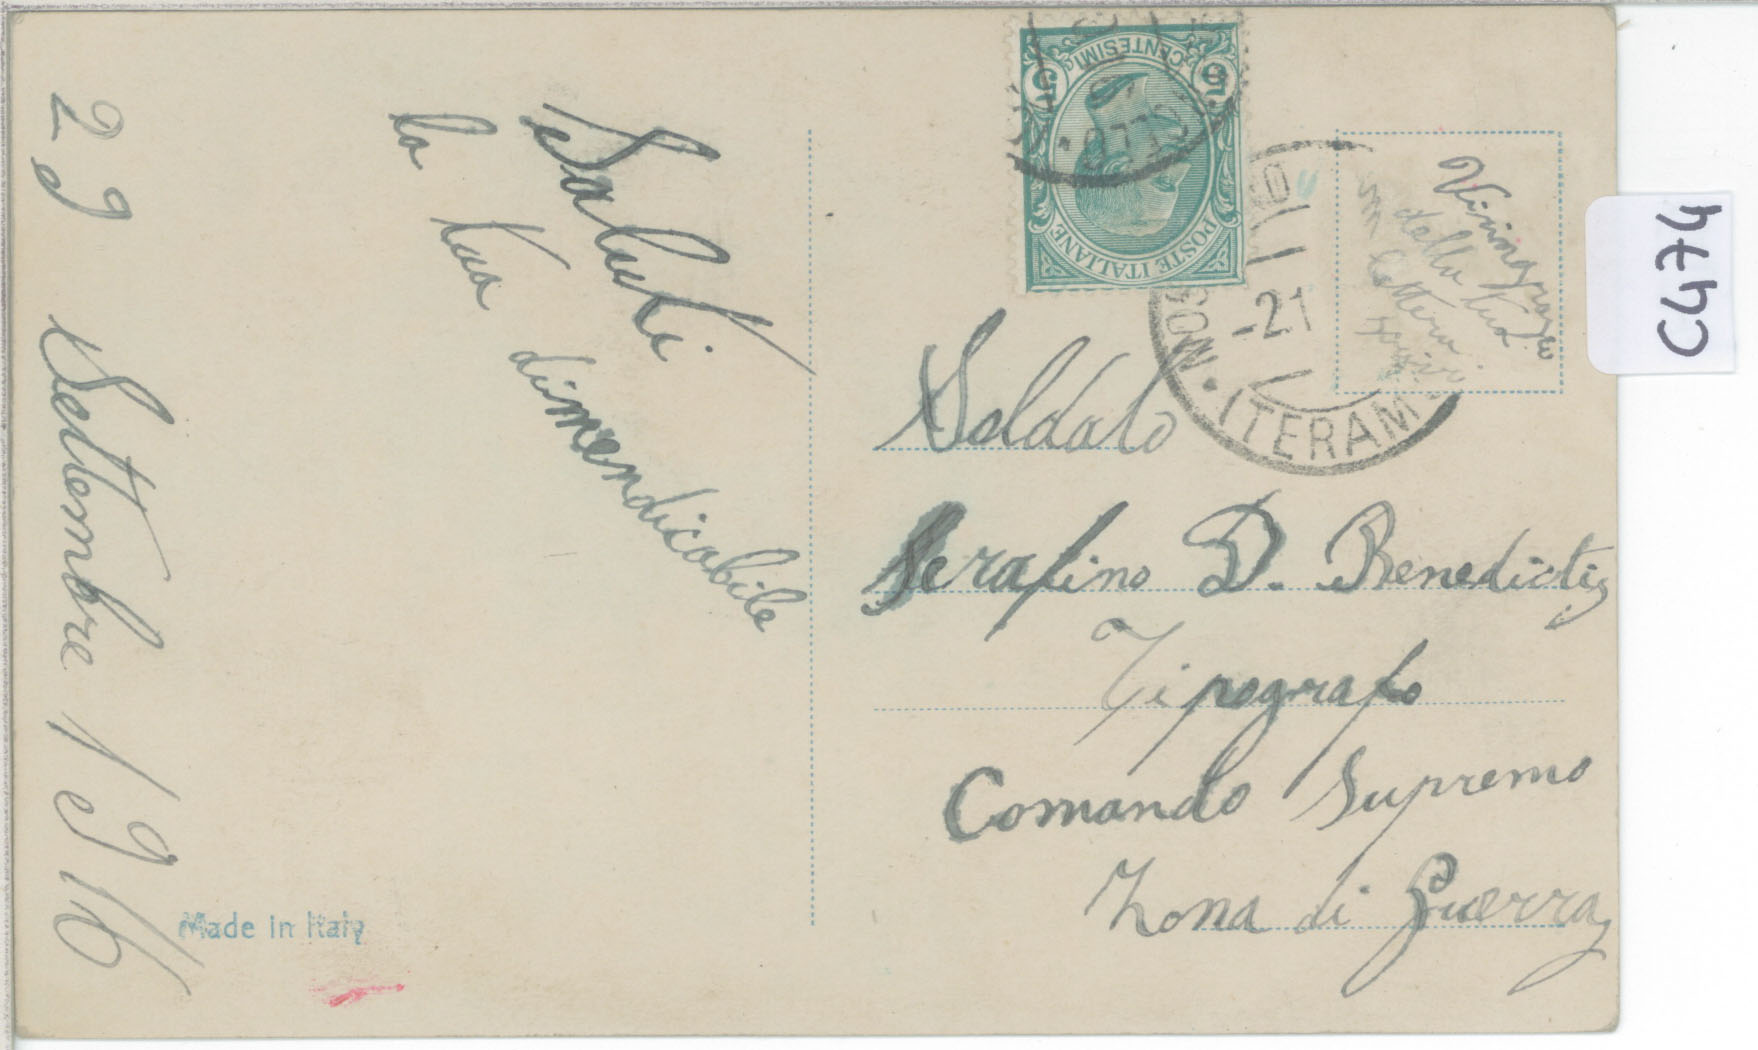 29 Settembre 1916
Saluti
la tua
dimendicabile
Made in Italy
POSTE ITALIANE
CENTESIMI
5 5
-21
(TERAM
Vi ringrazio
della tua
lettera
Soldato
Serafino D. Benedictis
Tipografo
Comando Supremo
Zona di Guerra
C474